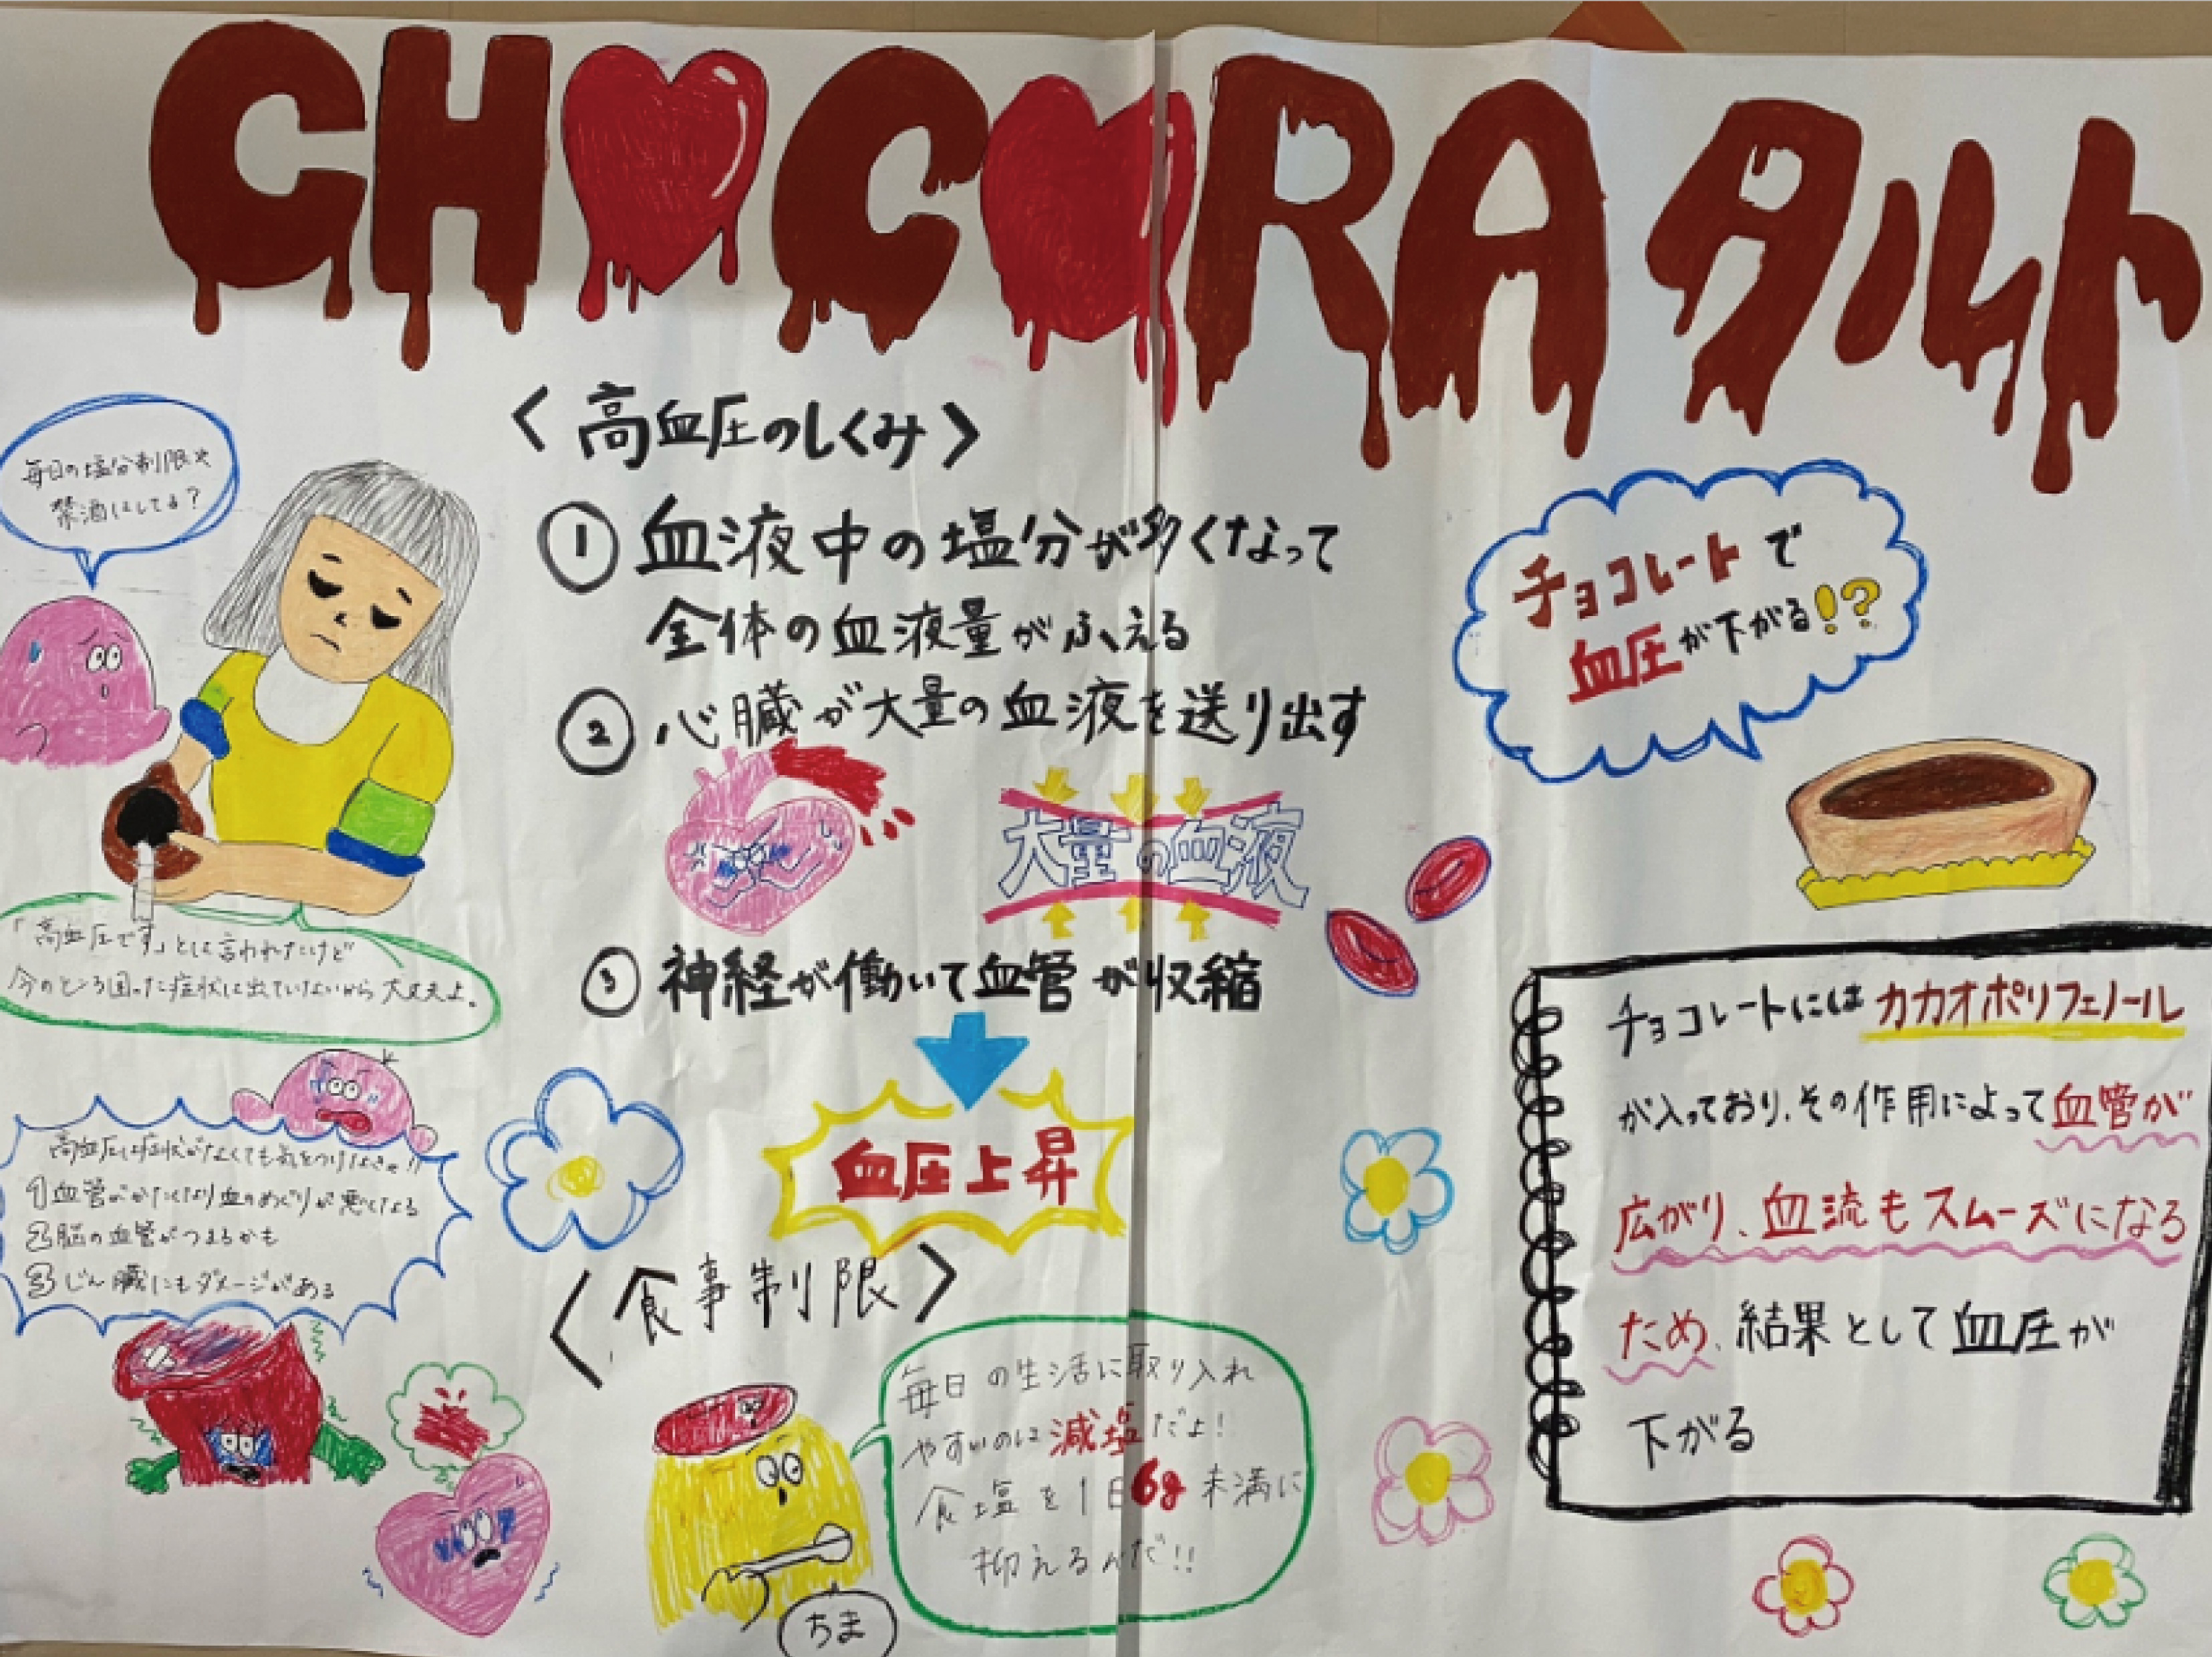 CHOCORAタルト
毎日の塩分制限や
禁酒はしてる？
「高血圧です」とは言われたけど
今のところ困った症状は出ていないから大丈夫よ。
高血圧は症状がなくても気をつけなきゃ!!
1血管がかたくなり血のめぐりが悪くなる
2脳の血管がつまるかも
3じん臓にもダメージがある
〈高血圧のしくみ〉
①血液中の塩分が多くなって
全体の血液量がふえる
②心臓が大量の血液を送り出す
大量の血液
③神経が働いて血管が収縮
血圧上昇
〈食事制限〉
毎日の生活に取り入れ
やすいのは減塩だよ!
食塩を1日6g未満に
抑えるんだ!!
ちま
チョコレートで
血圧が下がる!?
チョコレートにはカカオポリフェノール
が入っており、その作用によって血管が
広がり、血流もスムーズになる
ため、結果として血圧が
下がる